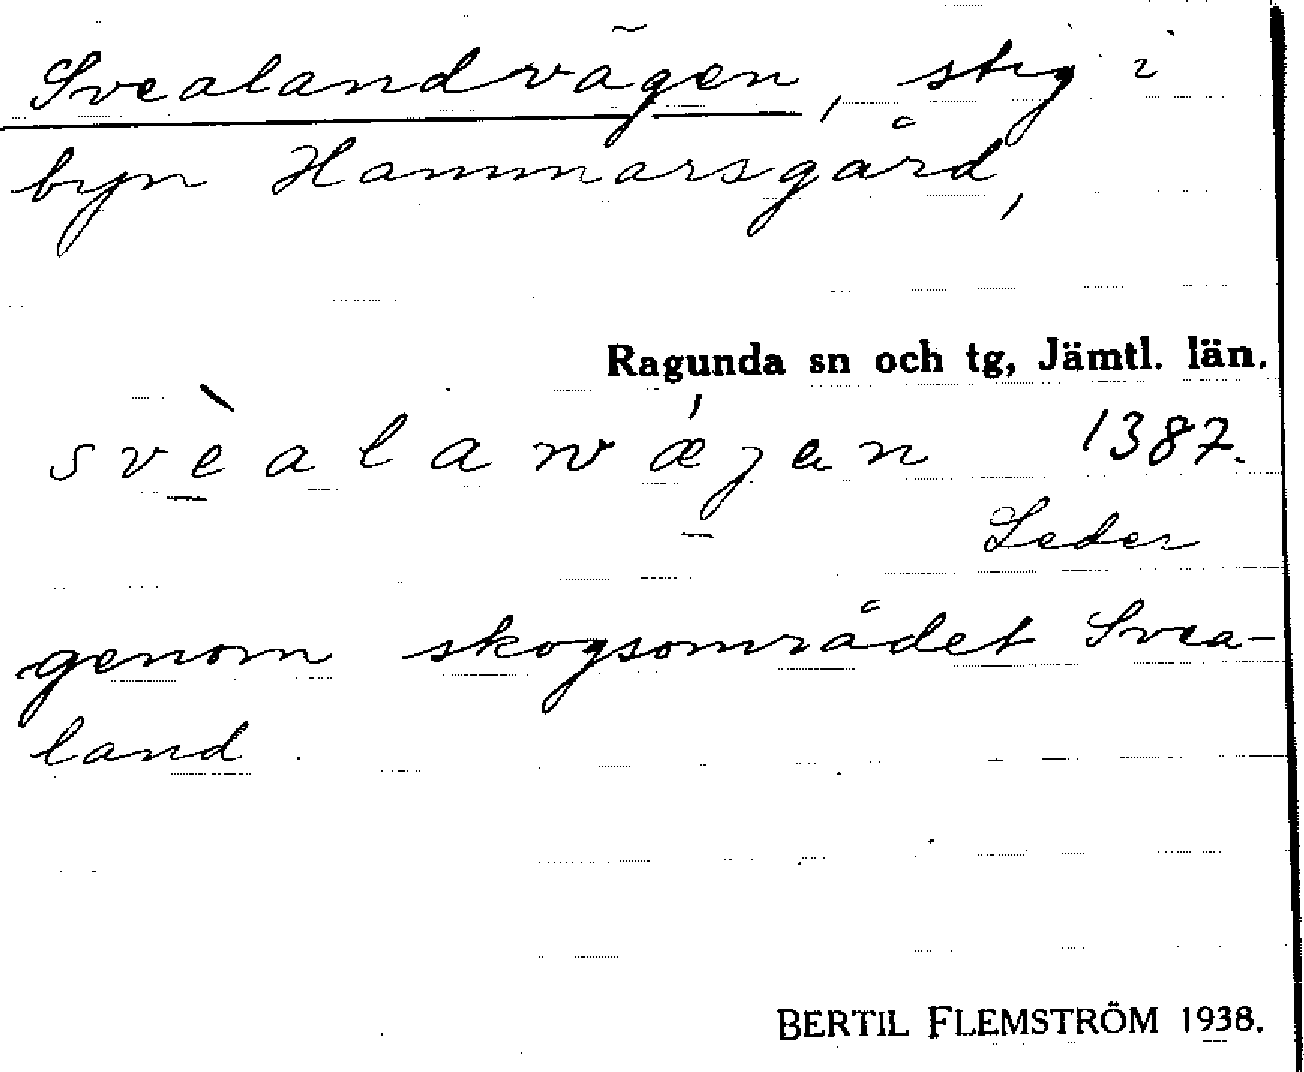 Svealandvägen, stig i
byn Hammarsgård,
Ragunda sn och tg, Jämtl. län.
svèalanvǽgen 1387.
Leder
genom skogsområdet Svea-
land.
BERTIL FLEMSTRÖM 1938.